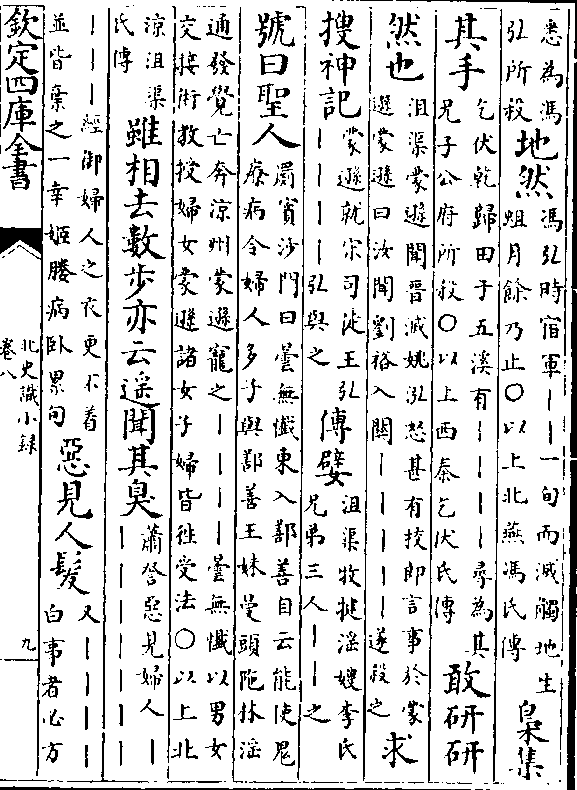 悉為馮
弘所殺
地然
馮弘時宿軍｜｜一旬而滅觸地生
蛆月餘乃止〇以上北燕馮氏傳
梟集
其手
乞伏乾歸田于五溪有｜｜｜｜尋為其
兄子公府所殺〇以上西秦乞伏氏傳
敢研研
然也
沮渠蒙遜聞晉滅姚泓怒甚有校郎言事於蒙
遜蒙遜曰汝聞劉裕入關｜｜｜｜｜遂殺之
求
搜神記
蒙遜就宋司徒王弘
｜｜｜｜弘與之
傳嬖
沮渠牧揵淫嫂李氏
兄弟三人｜｜之
號曰聖人
罽賓沙門曰曇無懺東入鄯善自云能使鬼
療病令婦人多子與鄯善王妹曼頭陁林淫
通發覺亡奔涼州蒙遜寵之｜｜｜｜曇無懺以男女
交接術教授婦女蒙遜諸女子婦皆往受法〇以上北
涼沮渠
氏傳
雖相去數步亦云遥聞其臭
蕭詧惡見婦人｜
｜｜｜｜｜｜｜
｜｜｜經御婦人之衣更不着
並皆棄之一幸姬媵病卧累旬
惡見人髮
又｜｜｜｜
白事者必方
欽定四庫全書
北史識小録
卷八
九